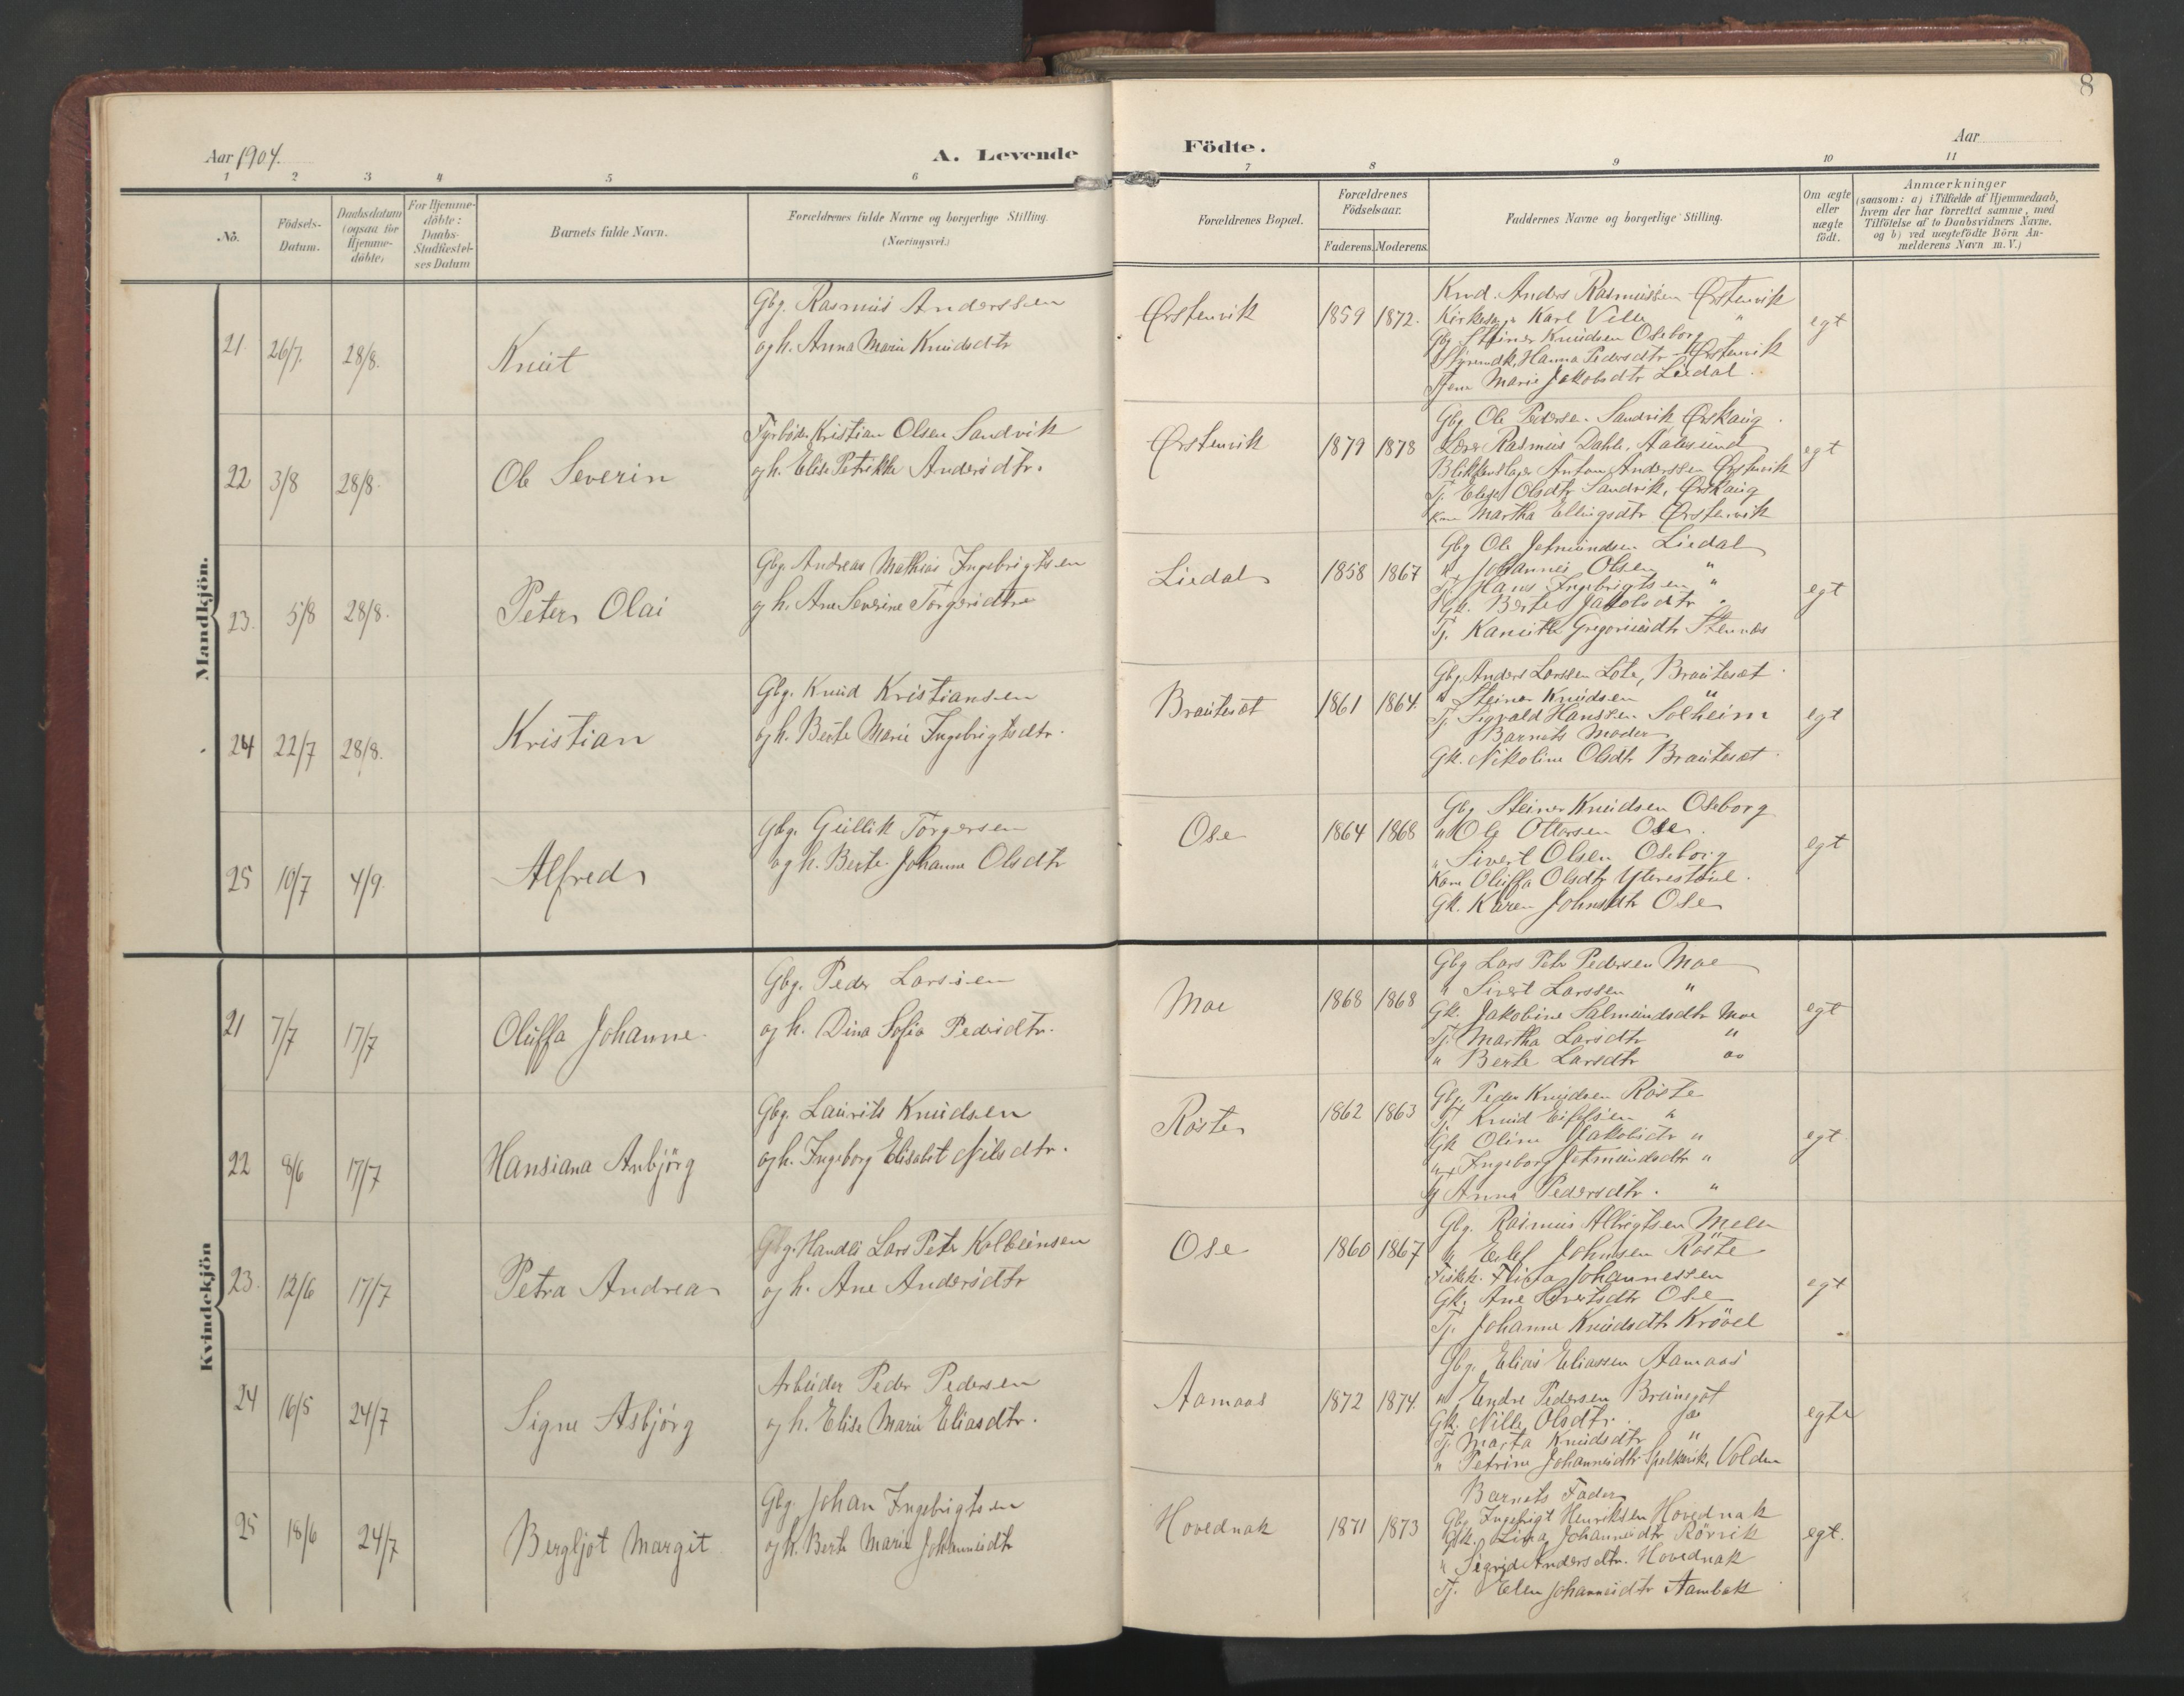 8
Aar 1904.
A. Levende Födte.
Aar
1 2 3 4 5 6 7 8 9 10 11
No.
Födsels-Datum.
Daabsdatum (ogsaa for Hjemmedöbte)
For Hjemmedöbte: Daabs-Stadfæstelses Datum
Barnets fulde Navn.
Forældrenes fulde Navne og borgerlige Stilling.
(Næringsvei.)
Forældrenes Bopæl.
Forældrenes Födselsaar.
Faderens. Moderens.
Faddernes Navne og borgerlige Stilling.
Om ægte eller uægte födt.
Anmærkninger
(saasom: a) i Tilfælde af Hjemmedaab,
hvem der har forrettet samme, med
Tilföielse af to Daabsvidners Navne.
og b) ved uægtefödte Börn An-
melderens Navn m.V.)
Mandkjön.
21. 26/7. 28/8. Knut
Gbg. Rasmus Anderssen
og h. Anna Marie Knudsdtr
Ørstenvik 1859 1872.
Knud. Anders Rasmussen Ørstenvik
Karl Velle "
Gbg. Steiner Knudsen Oseborg
Hanna Pedersdtr Ørstenvik
Marie Jakobsdtr Liedal.
egt
22 3/8 28/8. Ole Severin
Fyrböder Kristian Olsen Sandvik
og h. Elise Petrikke Andersdtr.
Ørstenvik 1879 1878
Gbg Ole Pedersen Sandvik Ørskaug.
Lærer Rasmus Dahle, Aalesund
Blikkenslager Anton Anderssen Ørstenvik
Tj. Elise Olsdtr Sandvik, Ørskaug
Kone Martha Ellingsdtr Ørstenvik
egt
23. 5/8 28/8. Peter Olai
Gbg. Andreas Mathias Ingebrigtsen
og h. Ane Severine Torgersdtr
Liedal 1858 1867
Gbg Ole Jetmundsen Liedal
" Johannes Olsen "
Tj. Hans Ingebrigtsen "
Gk. Berte Jakobsdtr "
Tj. Kanutte Gregoriusdtr Stennes
egt
24 22/7 28/8. Kristian
Gbg. Knud Kristiansen
og h. Berte Marie Ingebrigtsdtr.
Brauteset 1861 1864.
Gbg. Anders Larssen Lote, Brauteset.
" Steiner Knudsen "
Tj. Sigvald Hanssen Solheim
Barnets Moder
Gk. Nikoline Olsdtr Brauteset.
egt
25 10/7 4/9. Alfred
Gbg. Gullik Torgersen
og h. Berte Johanne Olsdtr
Ose 1864 1868
Gbg Steiner Knudsen Oseborg
" Ole Ottersen Ose.
" Sivert Olsen Oseborg
Kone Oluffa Olsdtr Yterestøile.
Gk. Karen Johnsdtr Ose
egt
Kvindekjön
21 7/7 17/7 Oluffa Johanne.
Gbg. Peder Larssen
og h. Dina Sofia Pedersdtr.
Moe 1868 1868
Gbg Lars Petr Pedersen Moe
" Sivert Larssen "
Gk. Jakobine Salmundsdtr Moe
Tj. Martha Larsdtr "
" Berte Larsdtr "
egt
22 8/6 17/7 Hansiana Anbjörg
Gbg. Laurits Knudsen
og h. Ingeborg Elisabet Nilsdtr.
Röste 1862 1863
Gbg. Peder Knudsen Röste
Tj. Knud "
Gk Oline Jakobsdtr "
" Ingeborg Jetmundsdtr "
Tj Anna Pedersdtr. "
egt
23. 12/6 17/7 Petra Andrea
Gbg. Handls Lars Petr Kolbeinsen
og h. Ane Andersdtr
Ose 1860 1867
Gbg. Rasmus Albrigtsen Melle
" Johnsen Röste
Johannessen
Gk. Ane Sivertsdtr Ose
Tj. Johanne Knudsdtr Krövel
egt
24 16/5 24/7 Signe Asbjörg
Arbeider Peder Pedersen
og h. Elise Marie Eliasdtr.
Aamaas 1872 1874.
Gbg. Elias Eliassen Aamaas
" Endre Pedersen
Gk. Nille Olsdtr.
Tj. Marta Knudsdtr "
" Petrine Johannesdtr Spelkavik, Volden
egte
25 18/6 24/7 Bergljot Margit
Gbg. Johan Ingebrigtsen
og h. Berte Marie Johannesdtr
Hovednak 1871 1873
Barnets Fader
Gbg Ingebrigt Henriksen Hovednak
Gk. Lina Johannesdtr Rörvik
" Sigrid Andersdtr. Hovednak
Tj. Elen Johannesdtr Aambak
egt.